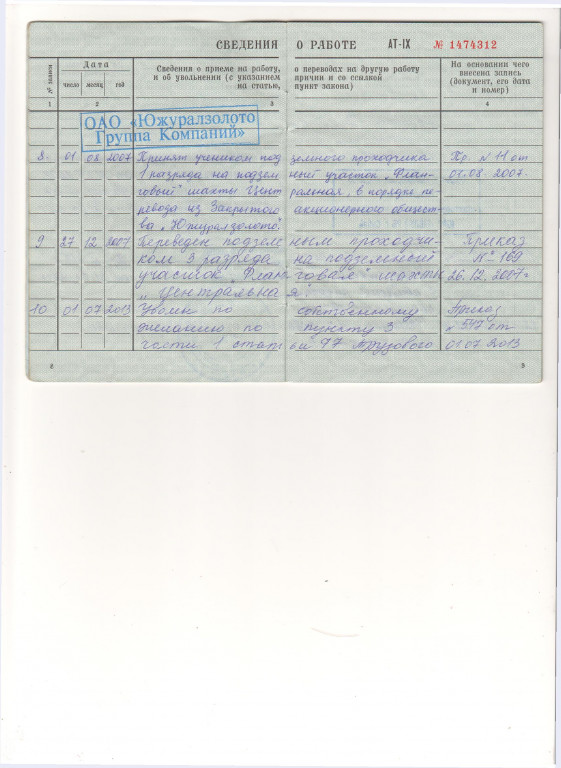 СВЕДЕНИЯ О РАБОТЕ АТ-IX № 1474312
№ записи
Дата
число месяц год
Сведения о приеме на работу, о переводах на другую работу
и об увольнении (с указанием причин и со ссылкой
на статью, пункт закона)
На основании чего
внесена запись
(документ, его дата
и номер)
1 2 3 4
ОАО «Южуралзолото
Группа Компаний»
8. 01 08 2007 Принят учеником подземного проходчика Пр. № 11 от
1 разряда на подземный участок „Флан- 01.08.2007.
говый" шахты Центральная, в порядке пе-
ревода из Закрытого акционерного общест-
ва „Южуралзолото".
9 27 12 2007 Переведен подземным проходчи- Приказ
ком 3 разряда на подземный № 169
участок „Фланговая" шахты 26.12.2007г
„Центральная".
10 01 07 2013 Уволен по собственному Приказ
желанию по пункту 3 № 547 от
части 1 статьи 77 Трудового 01.07.2013
2 3